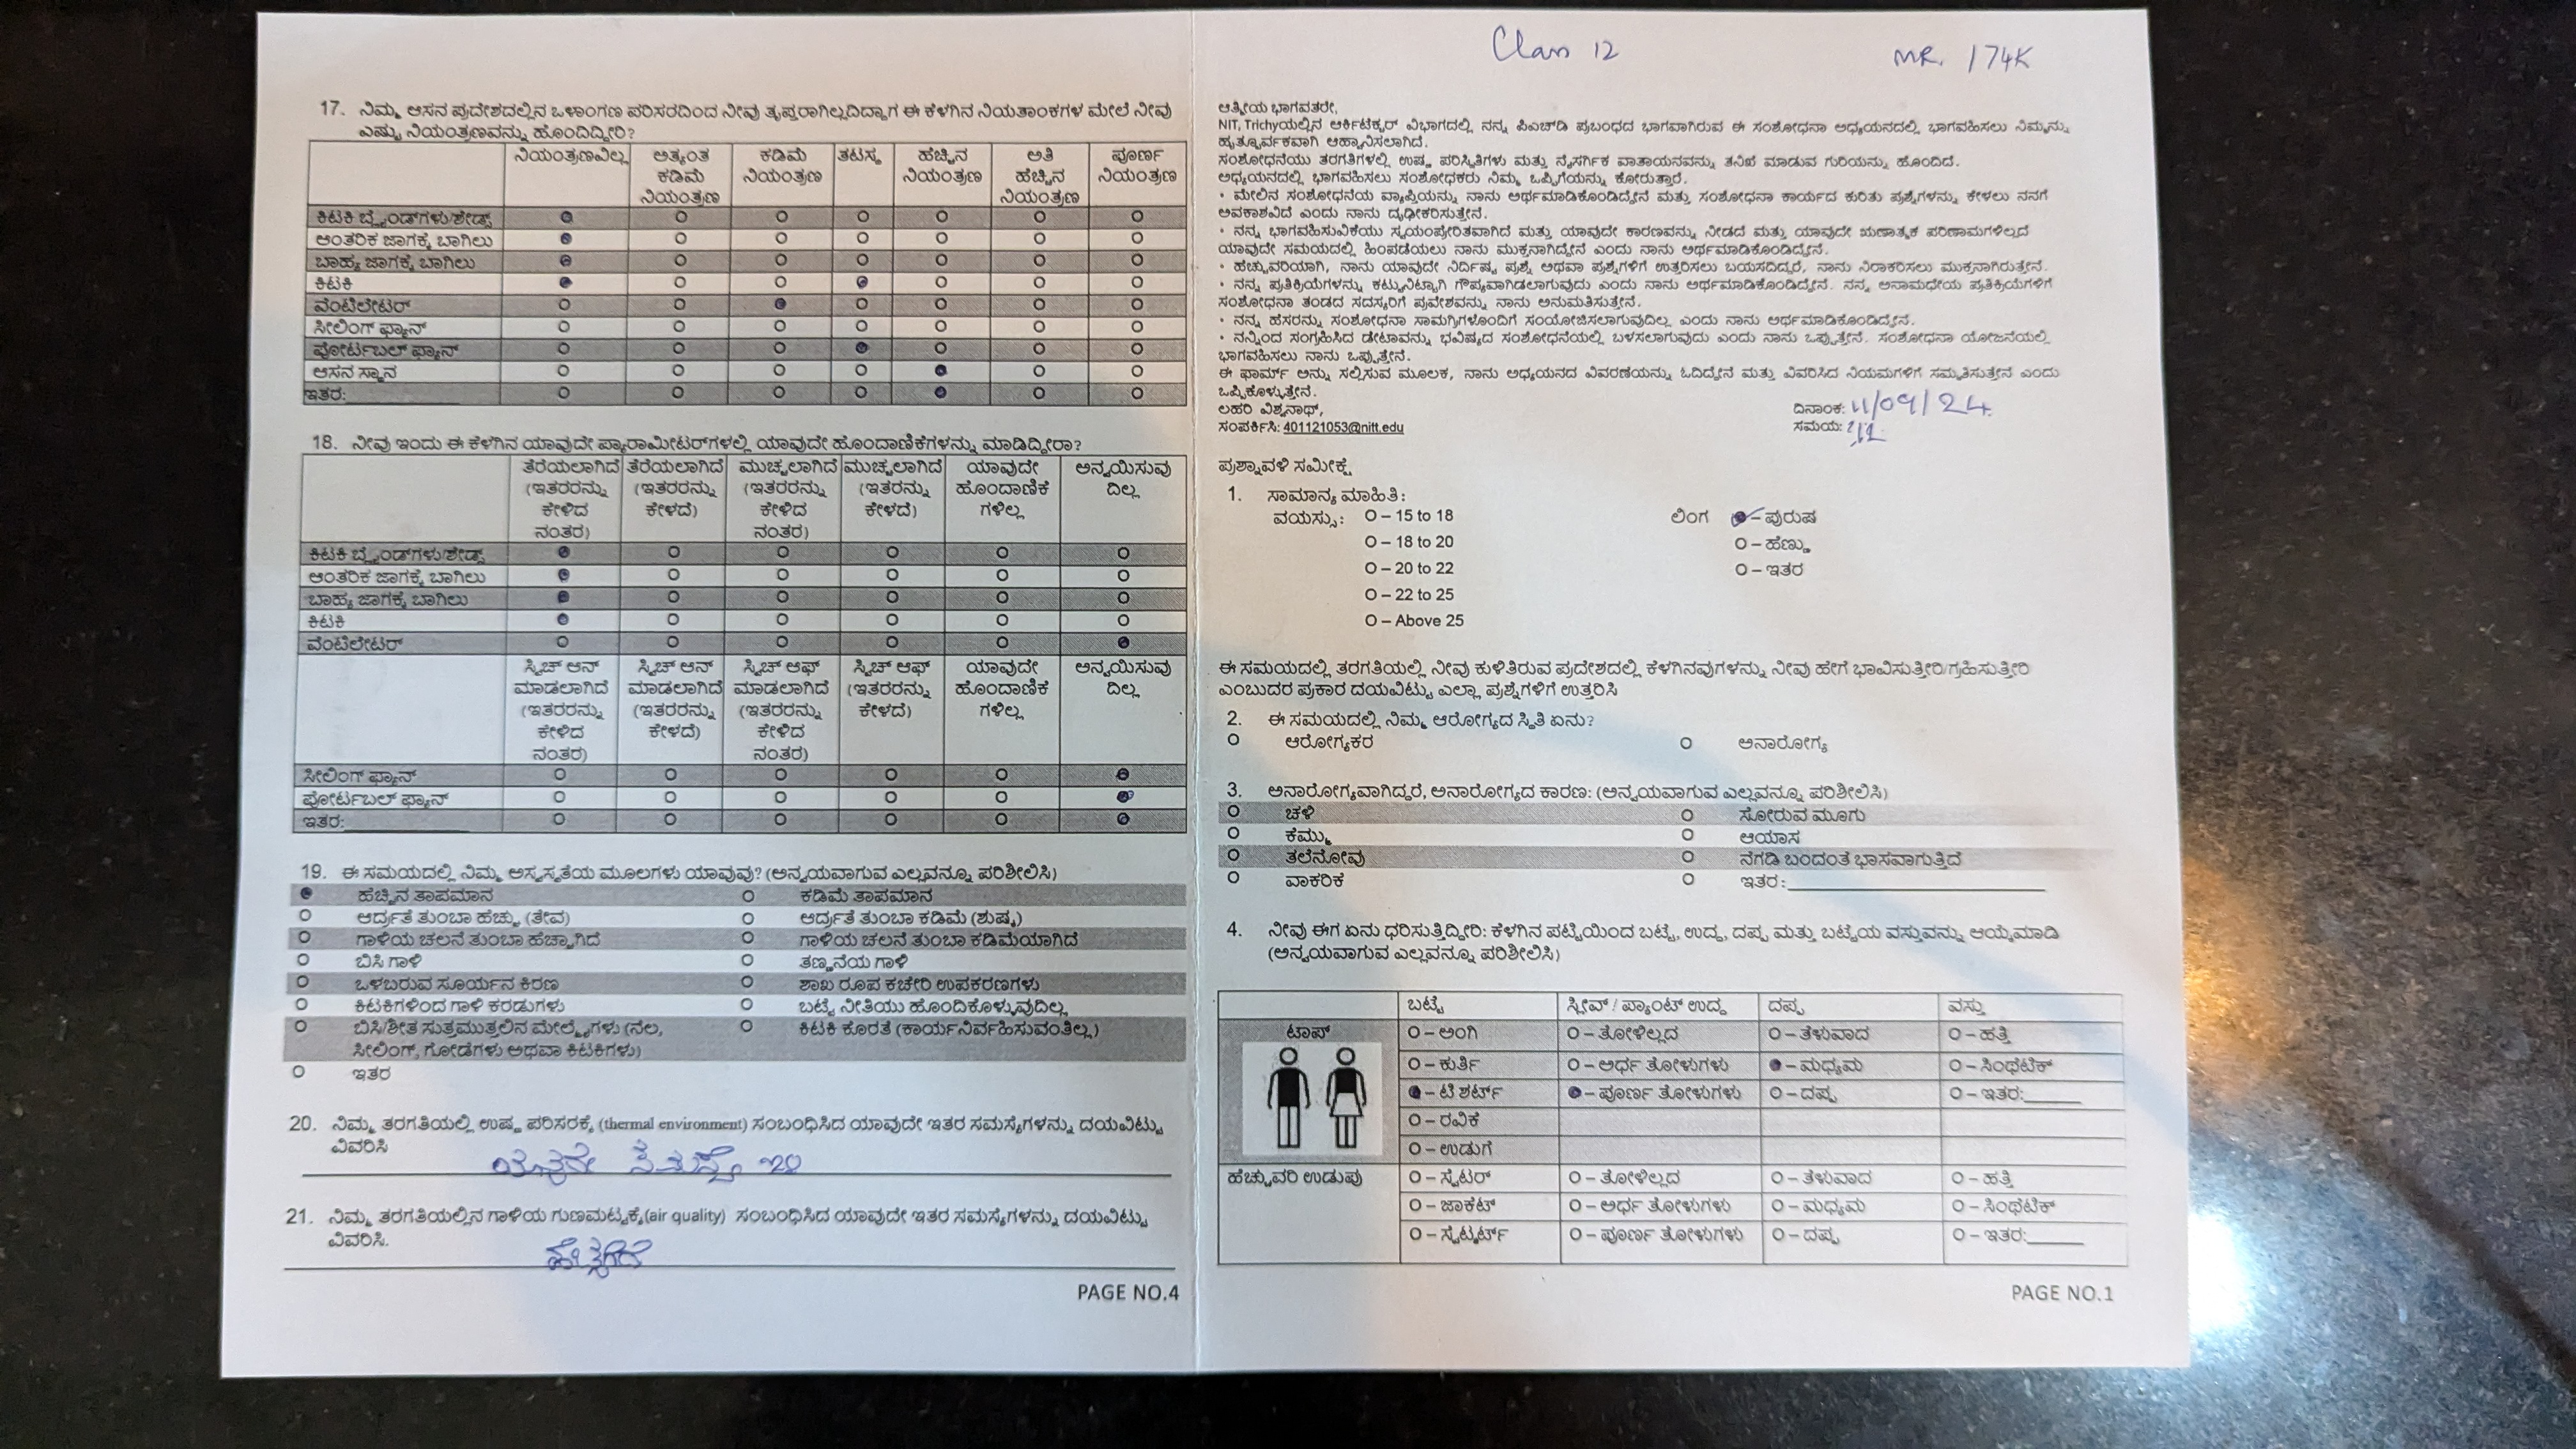 17. ನಿಮ್ಮ ಆಸನ ಪ್ರದೇಶದಲ್ಲಿನ ಒಳಾಂಗಣ ಪರಿಸರದಿಂದ ನೀವು ತೃಪ್ತರಾಗಿಲ್ಲದಿದ್ದಾಗ ಈ ಕೆಳಗಿನ ನಿಯತಾಂಕಗಳ ಮೇಲೆ ನೀವು
ಎಷ್ಟು ನಿಯಂತ್ರಣವನ್ನು ಹೊಂದಿದ್ದೀರಿ?
ನಿಯಂತ್ರಣವಿಲ್ಲ ಅತ್ಯಂತ ಕಡಿಮೆ ನಿಯಂತ್ರಣ ಕಡಿಮೆ ನಿಯಂತ್ರಣ ತಟಸ್ಥ ಹೆಚ್ಚಿನ ನಿಯಂತ್ರಣ ಅತಿ ಹೆಚ್ಚಿನ ನಿಯಂತ್ರಣ ಪೂರ್ಣ ನಿಯಂತ್ರಣ
ಕಿಟಕಿ ಬ್ಲೈಂಡ್‌ಗಳು/ಶೇಡ್ಸ್
ಆಂತರಿಕ ಜಾಗಕ್ಕೆ ಬಾಗಿಲು
ಬಾಹ್ಯ ಜಾಗಕ್ಕೆ ಬಾಗಿಲು
ಕಿಟಕಿ
ವೆಂಟಿಲೇಟರ್
ಸೀಲಿಂಗ್ ಫ್ಯಾನ್
ಪೋರ್ಟಬಲ್ ಫ್ಯಾನ್
ಆಸನ ಸ್ಥಾನ
ಇತರ:
18. ನೀವು ಇಂದು ಈ ಕೆಳಗಿನ ಯಾವುದೇ ಪ್ಯಾರಾಮೀಟರ್‌ಗಳಲ್ಲಿ ಯಾವುದೇ ಹೊಂದಾಣಿಕೆಗಳನ್ನು ಮಾಡಿದ್ದೀರಾ?
ತೆರೆಯಲಾಗಿದೆ (ಇತರರನ್ನು ಕೇಳಿದ ನಂತರ) ತೆರೆಯಲಾಗಿದೆ (ಇತರರನ್ನು ಕೇಳದೆ) ಮುಚ್ಚಲಾಗಿದೆ (ಇತರರನ್ನು ಕೇಳಿದ ನಂತರ) ಮುಚ್ಚಲಾಗಿದೆ (ಇತರನ್ನು ಕೇಳದೆ) ಯಾವುದೇ ಹೊಂದಾಣಿಕೆ ಗಳಿಲ್ಲ ಅನ್ವಯಿಸುವು ದಿಲ್ಲ
ಕಿಟಕಿ ಬ್ಲೈಂಡ್‌ಗಳು/ಶೇಡ್ಸ್
ಆಂತರಿಕ ಜಾಗಕ್ಕೆ ಬಾಗಿಲು
ಬಾಹ್ಯ ಜಾಗಕ್ಕೆ ಬಾಗಿಲು
ಕಿಟಕಿ
ವೆಂಟಿಲೇಟರ್
ಸ್ವಿಚ್ ಆನ್ ಮಾಡಲಾಗಿದೆ (ಇತರರನ್ನು ಕೇಳಿದ ನಂತರ) ಸ್ವಿಚ್ ಆನ್ ಮಾಡಲಾಗಿದೆ (ಇತರರನ್ನು ಕೇಳದೆ) ಸ್ವಿಚ್ ಆಫ್ ಮಾಡಲಾಗಿದೆ (ಇತರರನ್ನು ಕೇಳಿದ ನಂತರ) ಸ್ವಿಚ್ ಆಫ್ (ಇತರರನ್ನು ಕೇಳದೆ) ಯಾವುದೇ ಹೊಂದಾಣಿಕೆ ಗಳಿಲ್ಲ ಅನ್ವಯಿಸುವು ದಿಲ್ಲ
ಸೀಲಿಂಗ್ ಫ್ಯಾನ್
ಪೋರ್ಟಬಲ್ ಫ್ಯಾನ್
ಇತರ:
19. ಈ ಸಮಯದಲ್ಲಿ ನಿಮ್ಮ ಅಸ್ವಸ್ಥತೆಯ ಮೂಲಗಳು ಯಾವುವು? (ಅನ್ವಯವಾಗುವ ಎಲ್ಲವನ್ನೂ ಪರಿಶೀಲಿಸಿ)
ಹೆಚ್ಚಿನ ತಾಪಮಾನ ಕಡಿಮೆ ತಾಪಮಾನ
ಆರ್ದ್ರತೆ ತುಂಬಾ ಹೆಚ್ಚು (ತೇವ) ಆರ್ದ್ರತೆ ತುಂಬಾ ಕಡಿಮೆ (ಶುಷ್ಕ)
ಗಾಳಿಯ ಚಲನೆ ತುಂಬಾ ಹೆಚ್ಚಾಗಿದೆ ಗಾಳಿಯ ಚಲನೆ ತುಂಬಾ ಕಡಿಮೆಯಾಗಿದೆ
ಬಿಸಿ ಗಾಳಿ ತಣ್ಣನೆಯ ಗಾಳಿ
ಒಳಬರುವ ಸೂರ್ಯನ ಕಿರಣ ಶಾಖ ರೂಪ ಕಚೇರಿ ಉಪಕರಣಗಳು
ಕಿಟಕಿಗಳಿಂದ ಗಾಳಿ ಕರಡುಗಳು ಬಟ್ಟೆ ನೀತಿಯು ಹೊಂದಿಕೊಳ್ಳುವುದಿಲ್ಲ
ಬಿಸಿ/ಶೀತ ಸುತ್ತಮುತ್ತಲಿನ ಮೇಲ್ಮೈಗಳು (ನೆಲ, ಕಿಟಕಿ ಕೊರತೆ (ಕಾರ್ಯನಿರ್ವಹಿಸುವಂತಿಲ್ಲ)
ಸೀಲಿಂಗ್, ಗೋಡೆಗಳು ಅಥವಾ ಕಿಟಕಿಗಳು)
ಇತರ
20. ನಿಮ್ಮ ತರಗತಿಯಲ್ಲಿ ಉಷ್ಣ ಪರಿಸರಕ್ಕೆ (thermal environment) ಸಂಬಂಧಿಸಿದ ಯಾವುದೇ ಇತರ ಸಮಸ್ಯೆಗಳನ್ನು ದಯವಿಟ್ಟು
ವಿವರಿಸಿ
21. ನಿಮ್ಮ ತರಗತಿಯಲ್ಲಿನ ಗಾಳಿಯ ಗುಣಮಟ್ಟಕ್ಕೆ(air quality) ಸಂಬಂಧಿಸಿದ ಯಾವುದೇ ಇತರ ಸಮಸ್ಯೆಗಳನ್ನು ದಯವಿಟ್ಟು
ವಿವರಿಸಿ.
PAGE NO.4
Class 12 MR. 174K
ಆತ್ಮೀಯ ಭಾಗವತರೇ,
NIT, Trichyಯಲ್ಲಿನ ಆರ್ಕಿಟೆಕ್ಚರ್ ವಿಭಾಗದಲ್ಲಿ ನನ್ನ ಪಿಎಚ್‌ಡಿ ಪ್ರಬಂಧದ ಭಾಗವಾಗಿರುವ ಈ ಸಂಶೋಧನಾ ಅಧ್ಯಯನದಲ್ಲಿ ಭಾಗವಹಿಸಲು ನಿಮ್ಮನ್ನು
ಹೃತ್ಪೂರ್ವಕವಾಗಿ ಆಹ್ವಾನಿಸಲಾಗಿದೆ.
ಸಂಶೋಧನೆಯು ತರಗತಿಗಳಲ್ಲಿ ಉಷ್ಣ ಪರಿಸ್ಥಿತಿಗಳು ಮತ್ತು ನೈಸರ್ಗಿಕ ವಾತಾಯನವನ್ನು ತನಿಖೆ ಮಾಡುವ ಗುರಿಯನ್ನು ಹೊಂದಿದೆ.
ಅಧ್ಯಯನದಲ್ಲಿ ಭಾಗವಹಿಸಲು ಸಂಶೋಧಕರು ನಿಮ್ಮ ಒಪ್ಪಿಗೆಯನ್ನು ಕೋರುತ್ತಾರೆ.
• ಮೇಲಿನ ಸಂಶೋಧನೆಯ ವ್ಯಾಪ್ತಿಯನ್ನು ನಾನು ಅರ್ಥಮಾಡಿಕೊಂಡಿದ್ದೇನೆ ಮತ್ತು ಸಂಶೋಧನಾ ಕಾರ್ಯದ ಕುರಿತು ಪ್ರಶ್ನೆಗಳನ್ನು ಕೇಳಲು ನನಗೆ
ಅವಕಾಶವಿದೆ ಎಂದು ನಾನು ದೃಢೀಕರಿಸುತ್ತೇನೆ.
• ನನ್ನ ಭಾಗವಹಿಸುವಿಕೆಯು ಸ್ವಯಂಪ್ರೇರಿತವಾಗಿದೆ ಮತ್ತು ಯಾವುದೇ ಕಾರಣವನ್ನು ನೀಡದೆ ಮತ್ತು ಯಾವುದೇ ಋಣಾತ್ಮಕ ಪರಿಣಾಮಗಳಿಲ್ಲದೆ
ಯಾವುದೇ ಸಮಯದಲ್ಲಿ ಹಿಂಪಡೆಯಲು ನಾನು ಮುಕ್ತನಾಗಿದ್ದೇನೆ ಎಂದು ನಾನು ಅರ್ಥಮಾಡಿಕೊಂಡಿದ್ದೇನೆ.
• ಹೆಚ್ಚುವರಿಯಾಗಿ, ನಾನು ಯಾವುದೇ ನಿರ್ದಿಷ್ಟ ಪ್ರಶ್ನೆ ಅಥವಾ ಪ್ರಶ್ನೆಗಳಿಗೆ ಉತ್ತರಿಸಲು ಬಯಸದಿದ್ದರೆ, ನಾನು ನಿರಾಕರಿಸಲು ಮುಕ್ತನಾಗಿರುತ್ತೇನೆ.
• ನನ್ನ ಪ್ರತಿಕ್ರಿಯೆಗಳನ್ನು ಕಟ್ಟುನಿಟ್ಟಾಗಿ ಗೌಪ್ಯವಾಗಿಡಲಾಗುವುದು ಎಂದು ನಾನು ಅರ್ಥಮಾಡಿಕೊಂಡಿದ್ದೇನೆ. ನನ್ನ ಅನಾಮಧೇಯ ಪ್ರತಿಕ್ರಿಯೆಗಳಿಗೆ
ಸಂಶೋಧನಾ ತಂಡದ ಸದಸ್ಯರಿಗೆ ಪ್ರವೇಶವನ್ನು ನಾನು ಅನುಮತಿಸುತ್ತೇನೆ.
• ನನ್ನ ಹೆಸರನ್ನು ಸಂಶೋಧನಾ ಸಾಮಗ್ರಿಗಳೊಂದಿಗೆ ಸಂಯೋಜಿಸಲಾಗುವುದಿಲ್ಲ ಎಂದು ನಾನು ಅರ್ಥಮಾಡಿಕೊಂಡಿದ್ದೇನೆ.
• ನನ್ನಿಂದ ಸಂಗ್ರಹಿಸಿದ ಡೇಟಾವನ್ನು ಭವಿಷ್ಯದ ಸಂಶೋಧನೆಯಲ್ಲಿ ಬಳಸಲಾಗುವುದು ಎಂದು ನಾನು ಒಪ್ಪುತ್ತೇನೆ. ಸಂಶೋಧನಾ ಯೋಜನೆಯಲ್ಲಿ
ಭಾಗವಹಿಸಲು ನಾನು ಒಪ್ಪುತ್ತೇನೆ.
ಈ ಫಾರ್ಮ್ ಅನ್ನು ಸಲ್ಲಿಸುವ ಮೂಲಕ, ನಾನು ಅಧ್ಯಯನದ ವಿವರಣೆಯನ್ನು ಓದಿದ್ದೇನೆ ಮತ್ತು ವಿವರಿಸಿದ ನಿಯಮಗಳಿಗೆ ಸಮ್ಮತಿಸುತ್ತೇನೆ ಎಂದು
ಒಪ್ಪಿಕೊಳ್ಳುತ್ತೇನೆ.
ಲಹರಿ ವಿಶ್ವನಾಥ್, ದಿನಾಂಕ: 11/09/24
ಸಂಪರ್ಕಿಸಿ: 401121053@nitt.edu ಸಮಯ:
ಪ್ರಶ್ನಾವಳಿ ಸಮೀಕ್ಷೆ
1. ಸಾಮಾನ್ಯ ಮಾಹಿತಿ:
ವಯಸ್ಸು: O – 15 to 18 ಲಿಂಗ – ಪುರುಷ
O – 18 to 20 O – ಹೆಣ್ಣು
O – 20 to 22 O – ಇತರ
O – 22 to 25
O – Above 25
ಈ ಸಮಯದಲ್ಲಿ ತರಗತಿಯಲ್ಲಿ ನೀವು ಕುಳಿತಿರುವ ಪ್ರದೇಶದಲ್ಲಿ ಕೆಳಗಿನವುಗಳನ್ನು ನೀವು ಹೇಗೆ ಭಾವಿಸುತ್ತೀರಿ/ಗ್ರಹಿಸುತ್ತೀರಿ
ಎಂಬುದರ ಪ್ರಕಾರ ದಯವಿಟ್ಟು ಎಲ್ಲಾ ಪ್ರಶ್ನೆಗಳಿಗೆ ಉತ್ತರಿಸಿ
2. ಈ ಸಮಯದಲ್ಲಿ ನಿಮ್ಮ ಆರೋಗ್ಯದ ಸ್ಥಿತಿ ಏನು?
ಆರೋಗ್ಯಕರ ಅನಾರೋಗ್ಯ
3. ಅನಾರೋಗ್ಯವಾಗಿದ್ದರೆ, ಅನಾರೋಗ್ಯದ ಕಾರಣ: (ಅನ್ವಯವಾಗುವ ಎಲ್ಲವನ್ನೂ ಪರಿಶೀಲಿಸಿ)
ಚಳಿ ಸೋರುವ ಮೂಗು
ಕೆಮ್ಮು ಆಯಾಸ
ತಲೆನೋವು ನೆಗಡಿ ಬಂದಂತೆ ಭಾಸವಾಗುತ್ತಿದೆ
ವಾಕರಿಕೆ ಇತರ:
4. ನೀವು ಈಗ ಏನು ಧರಿಸುತ್ತಿದ್ದೀರಿ: ಕೆಳಗಿನ ಪಟ್ಟಿಯಿಂದ ಬಟ್ಟೆ, ಉದ್ದ, ದಪ್ಪ ಮತ್ತು ಬಟ್ಟೆಯ ವಸ್ತುವನ್ನು ಆಯ್ಕೆಮಾಡಿ
(ಅನ್ವಯವಾಗುವ ಎಲ್ಲವನ್ನೂ ಪರಿಶೀಲಿಸಿ)
ಬಟ್ಟೆ ಸ್ಲೀವ್ / ಪ್ಯಾಂಟ್ ಉದ್ದ ದಪ್ಪ ವಸ್ತು
ಟಾಪ್ O – ಅಂಗಿ O – ತೋಳಿಲ್ಲದ O – ತೆಳುವಾದ O – ಹತ್ತಿ
O – ಕುರ್ತಿ O – ಅರ್ಧ ತೋಳುಗಳು – ಮಧ್ಯಮ O – ಸಿಂಥೆಟಿಕ್
– ಟಿ ಶರ್ಟ್ – ಪೂರ್ಣ ತೋಳುಗಳು O – ದಪ್ಪ O – ಇತರ:
O – ರವಿಕೆ
O – ಉಡುಗೆ
ಹೆಚ್ಚುವರಿ ಉಡುಪು O – ಸ್ವೆಟರ್ O – ತೋಳಿಲ್ಲದ O – ತೆಳುವಾದ O – ಹತ್ತಿ
O – ಜಾಕೆಟ್ O – ಅರ್ಧ ತೋಳುಗಳು O – ಮಧ್ಯಮ O – ಸಿಂಥೆಟಿಕ್
O – ಸ್ವೆಟ್ಶರ್ಟ್ O – ಪೂರ್ಣ ತೋಳುಗಳು O – ದಪ್ಪ O – ಇತರ:
PAGE NO.1